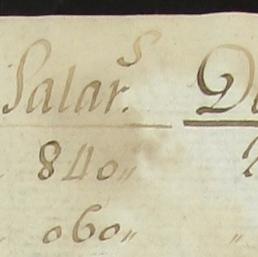 Salar.s
840"
060"